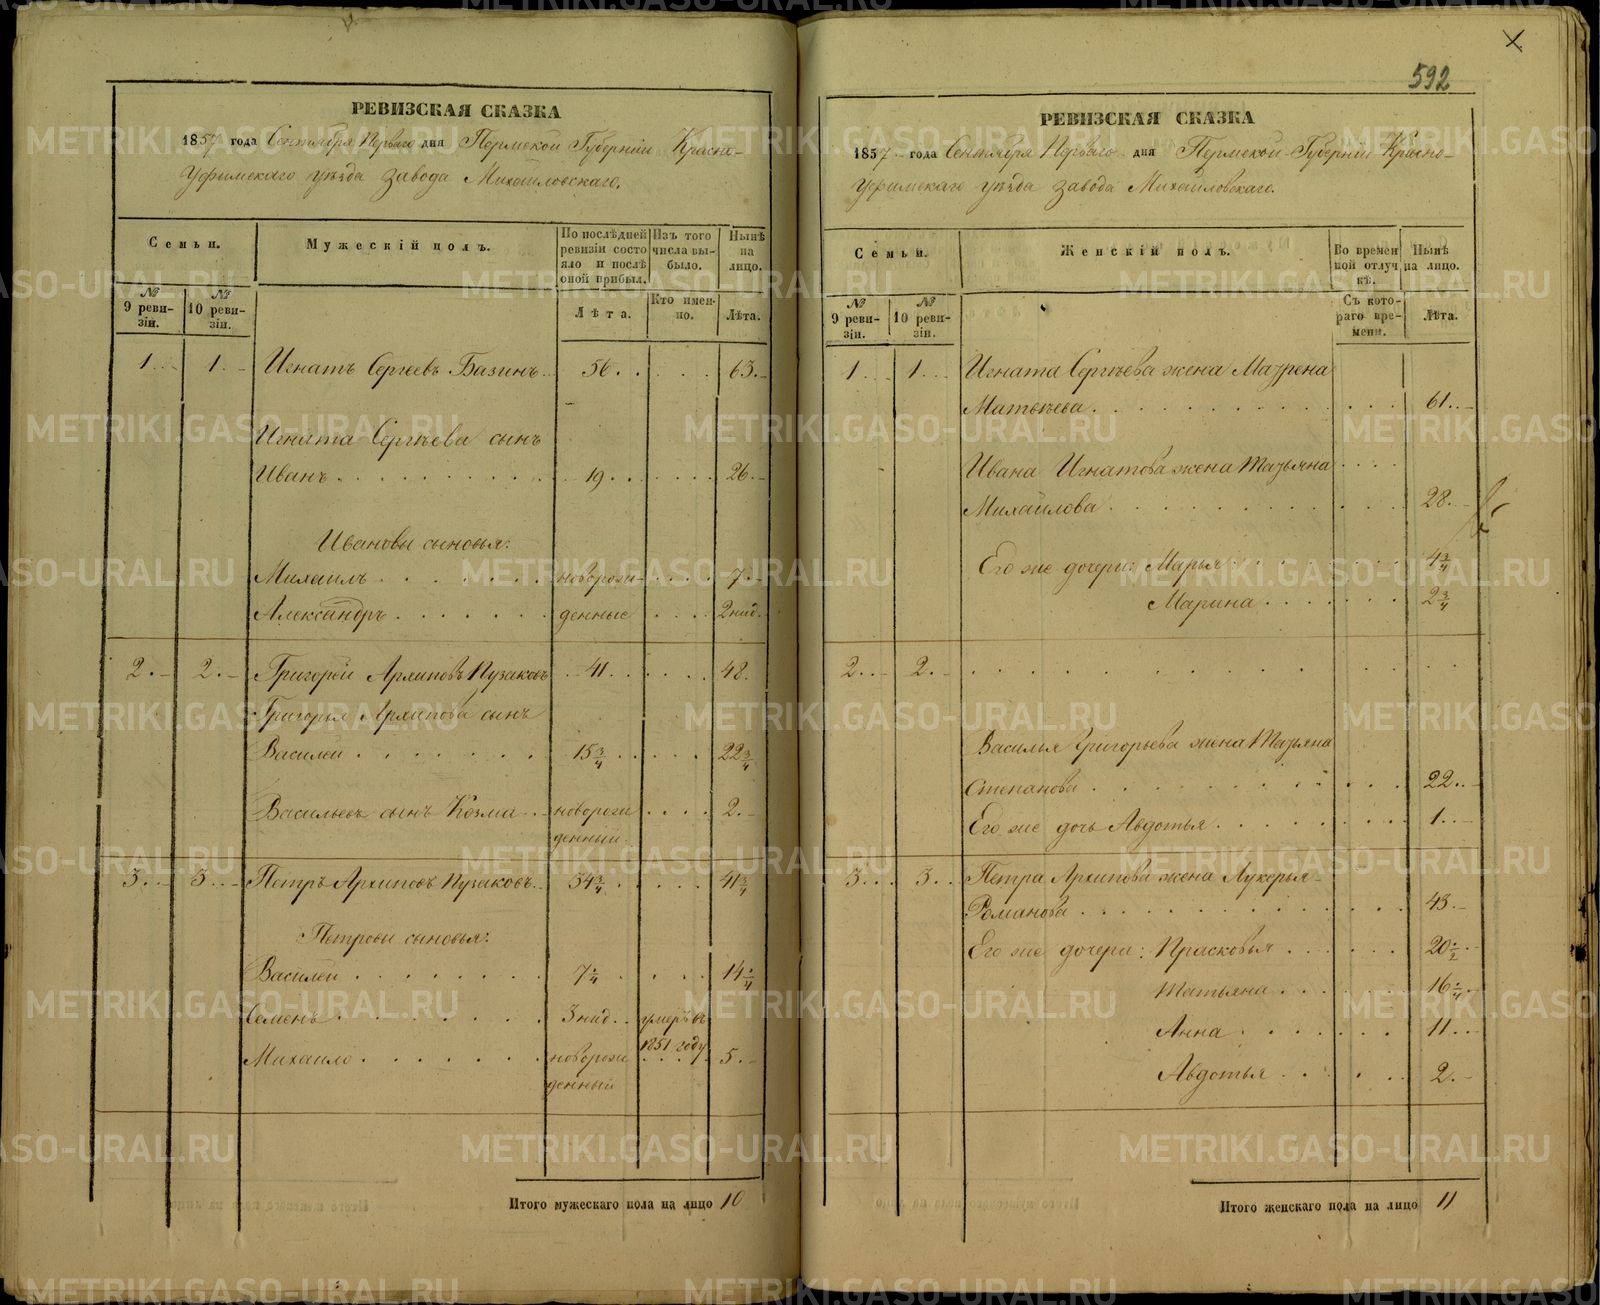 592
РЕВИЗСКАЯ СКАЗКА
1857 года Сентября Перваго дня Пермской Губерніи Красно-
Уфимскаго уѣзда завода Михайловскаго.
Семьи.
Мужескій полъ.
По послѣдней ревизіи состояло и послѣ оной прибыл.
Изъ того числа выбыло.
Нынѣ на лицо.
№ 9 ревизіи.
№ 10 ревизіи.
Лѣта.
Кто именно.
Лѣта.
1 1 Игнатъ Сергѣевъ Базинъ 56 63
Игната Сергѣева сынъ
Иванъ 19 26
Ивановы сыновья:
Михаилъ новорож- 7
Александръ денные 2 нид.
2 2 Григорей Архиповъ Пузаковъ 41 48
Григорья Архипова сынъ
Василей 15 3/4 22 3/4
Васильевъ сынъ Козма новорож 2
денный
3 3 Петръ Архиповъ Пузаковъ 34 3/4 41 3/4
Петровы сыновья:
Василей 7 1/4 14 1/4
Семенъ 3 нид. умеръ въ
1851 году
Михайло новорож 5
денный
Итого мужескаго пола на лицо 10
РЕВИЗСКАЯ СКАЗКА
1857 года Сентября Перваго дня Пермской Губерніи Красно-
уфимскаго уѣзда завода Михайловскаго.
Семьи.
Женскій полъ.
Во временной отлучкѣ.
Нынѣ на лицо.
№ 9 ревизіи.
№ 10 ревизіи.
Съ котораго времени.
Лѣта.
1 1 Игната Сергѣева жена Маврена
Матвѣева 61
Ивана Игнатова жена Татьяна
Михайлова 28
Его же дочери: Марья 4 3/4
Марина 2 3/4
2 2
Василья Григорьева жена Татьяна
Степанова 22
Его же дочь Авдотья 1
3 3 Петра Архипова жена Лукерья
Романова 43
Его же дочери: Прасковья 20 1/2
Татьяна 16 1/4
Анна 11
Авдотья 2
Итого женскаго пола на лицо 11
METRIKI.GASO-URAL.RU